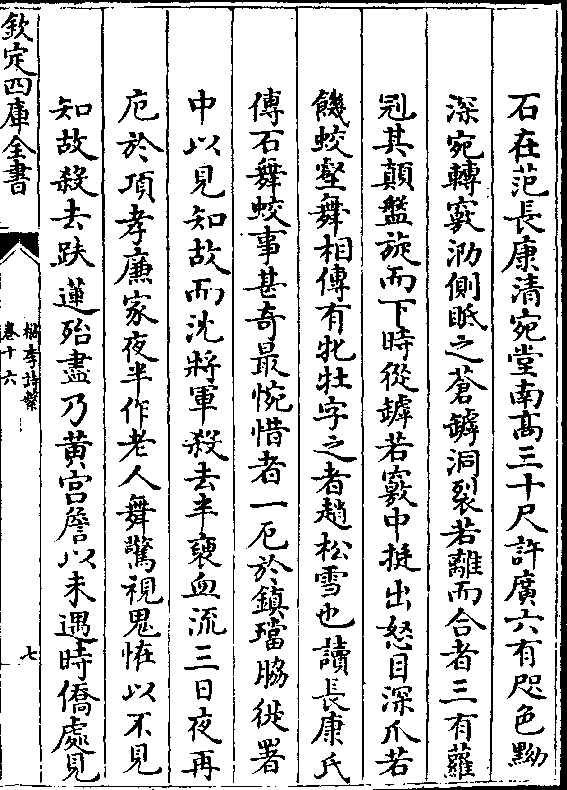 石在范長康清宛堂南髙三十尺許廣六有咫色黝
深宛轉竅泐側眂之蒼罅洞裂若離而合者三有蘿
剋其顛盤旋而下時從罅若竅中挺出怒目深爪若
饑蛟壑舞相傳有牝牡字之者趙松雪也讀長康氏
傳石舞蛟事甚奇最惋惜者一厄於鎮璫脇徙署
中以見知故而沈將軍殺去半褏血流三日夜再
厄於項孝廉家夜半作老人舞驚視鬼恠以不見
知故殺去趺蓮殆盡乃黄宫詹以未遇時僑處見
欽定四庫全書
檇李詩繫
卷十六
七